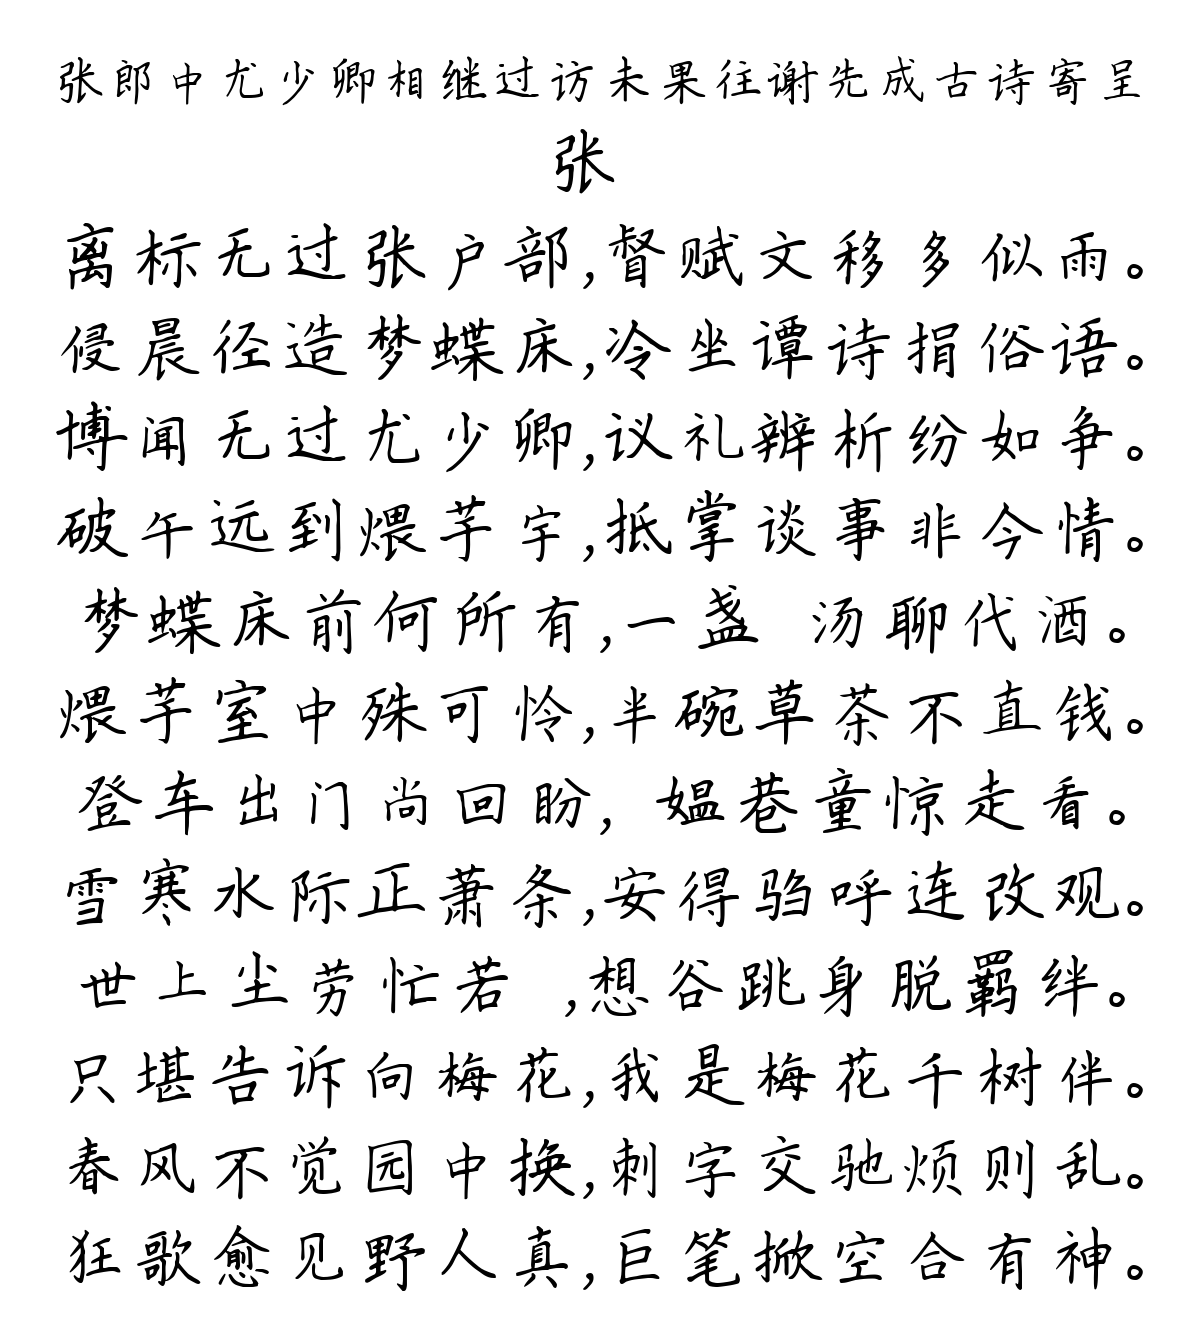 张郎中尤少卿相继过访未果往谢先成古诗寄呈
张
离标无过张户部,督赋文移多似雨。
侵晨径造梦蝶床,冷坐谭诗捐俗语。
博闻无过尤少卿,议礼辨析纷如争。
破午远到煨芋宇,抵掌谈事非今情。
梦蝶床前何所有,一盏 汤聊代酒。
煨芋室中殊可怜,半碗草茶不直钱。
登车出门尚回盼, 媪巷童惊走看。
雪寒水际正萧条,安得驺呼连改观。
世上尘劳忙若 ,想谷跳身脱羁绊。
只堪告诉向梅花,我是梅花千树伴。
春风不觉园中换,刺字交驰烦则乱。
狂歌愈见野人真,巨笔掀空合有神。